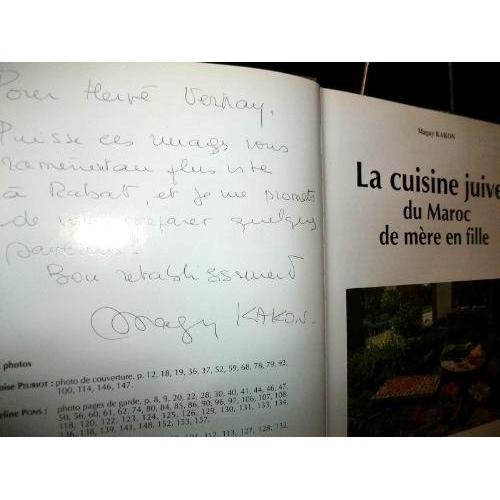 Pour Hervé Vernay,
Puisse ces images vous
ramènent au plus vite
à Rabat, et je me promets
de vous préparer quelques
Bon rétablissement
Magy KAKON.
photos
oise PEURIOT : photo de couverture, p. 12, 18, 19, 36, 37, 52, 59, 68, 78, 79, 92,
100, 114, 146, 147.
eline PONS : photo pages de garde, p. 8, 9, 20, 22, 28, 30, 40, 41, 44, 46, 47,
50, 56, 60, 61, 62, 74, 80, 84, 85, 86, 90, 96, 97, 106, 107, 108,
118, 120, 122, 123, 124, 125, 126, 129, 130, 131, 133, 134,
136, 138, 139, 141, 148, 152, 153, 157.
112, 113, 127, 128, 132,
Maguy KAKON
La cuisine juive
du Maroc
de mère en fille